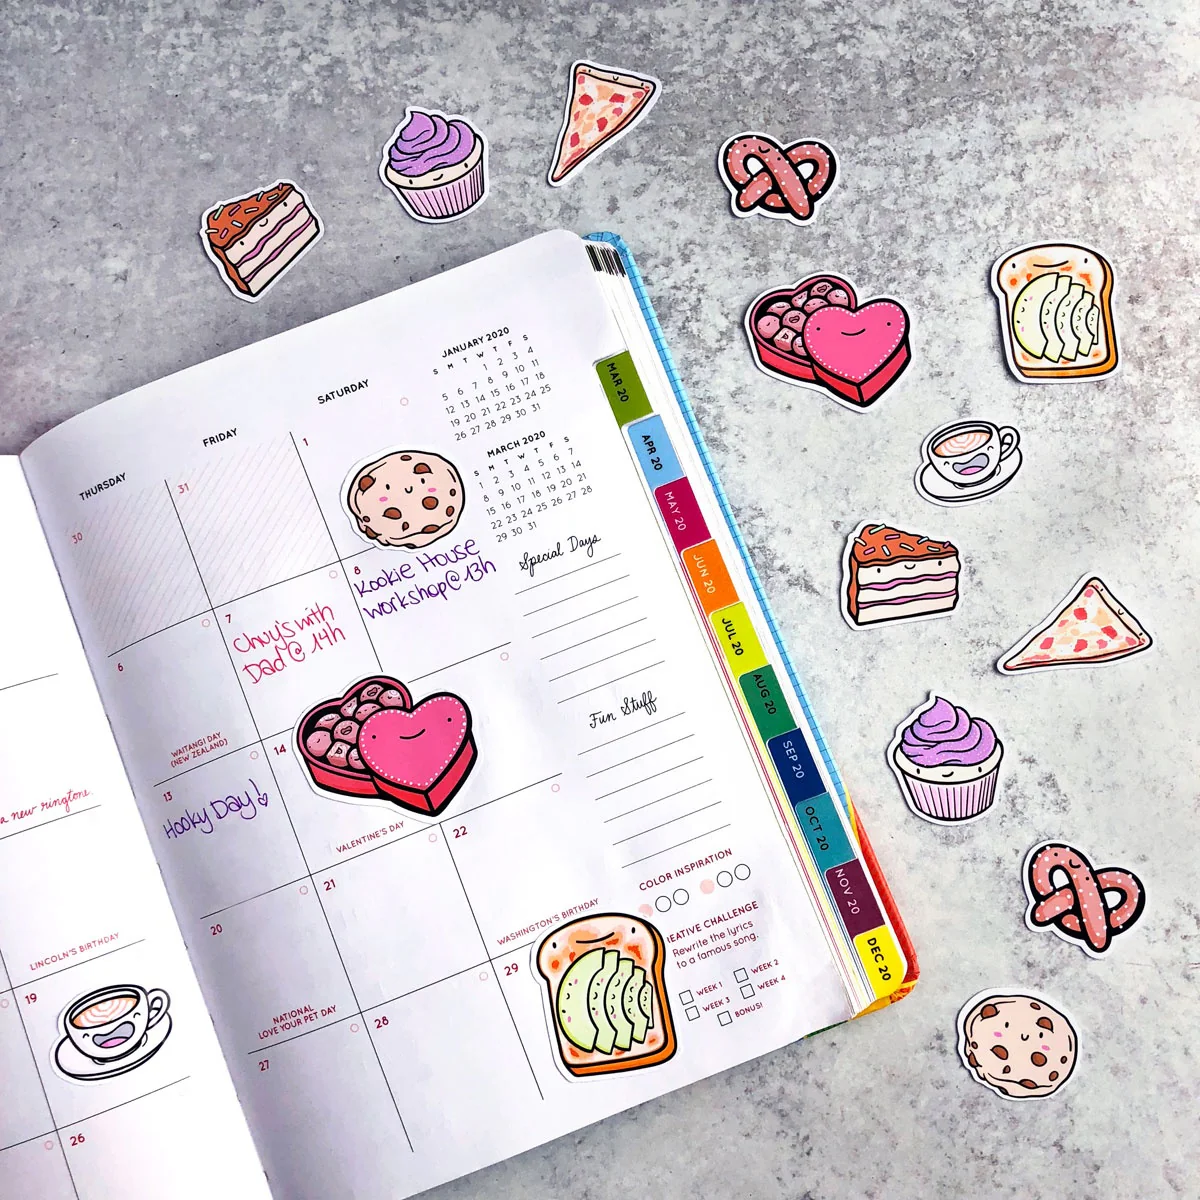 THURSDAY
FRIDAY
SATURDAY
30
31
1
6
7
Chuy's with
Dad @ 14h
8
Kookie House
workshop @ 13h
WAITANGI DAY
(NEW ZEALAND)
13
Hooky Day!
14
VALENTINE'S DAY
a new ringtone.
LINCOLN'S BIRTHDAY
19
20
NATIONAL
LOVE YOUR PET DAY
21
22
WASHINGTON'S BIRTHDAY
26
27
28
29
JANUARY 2020
S M T W T F S
1 2 3 4
5 6 7 8 9 10 11
12 13 14 15 16 17 18
19 20 21 22 23 24 25
26 27 28 29 30 31
MARCH 2020
S M T W T F S
1 2 3 4 5 6 7
8 9 10 11 12 13 14
15 16 17 18 19 20 21
22 23 24 25 26 27 28
29 30 31
Special Days
Fun Stuff
COLOR INSPIRATION
EATIVE CHALLENGE
Rewrite the lyrics
to a famous song.
WEEK 1
WEEK 2
WEEK 3
WEEK 4
BONUS!
MAR 20
APR 20
MAY 20
JUN 20
JUL 20
AUG 20
SEP 20
OCT 20
NOV 20
DEC 20